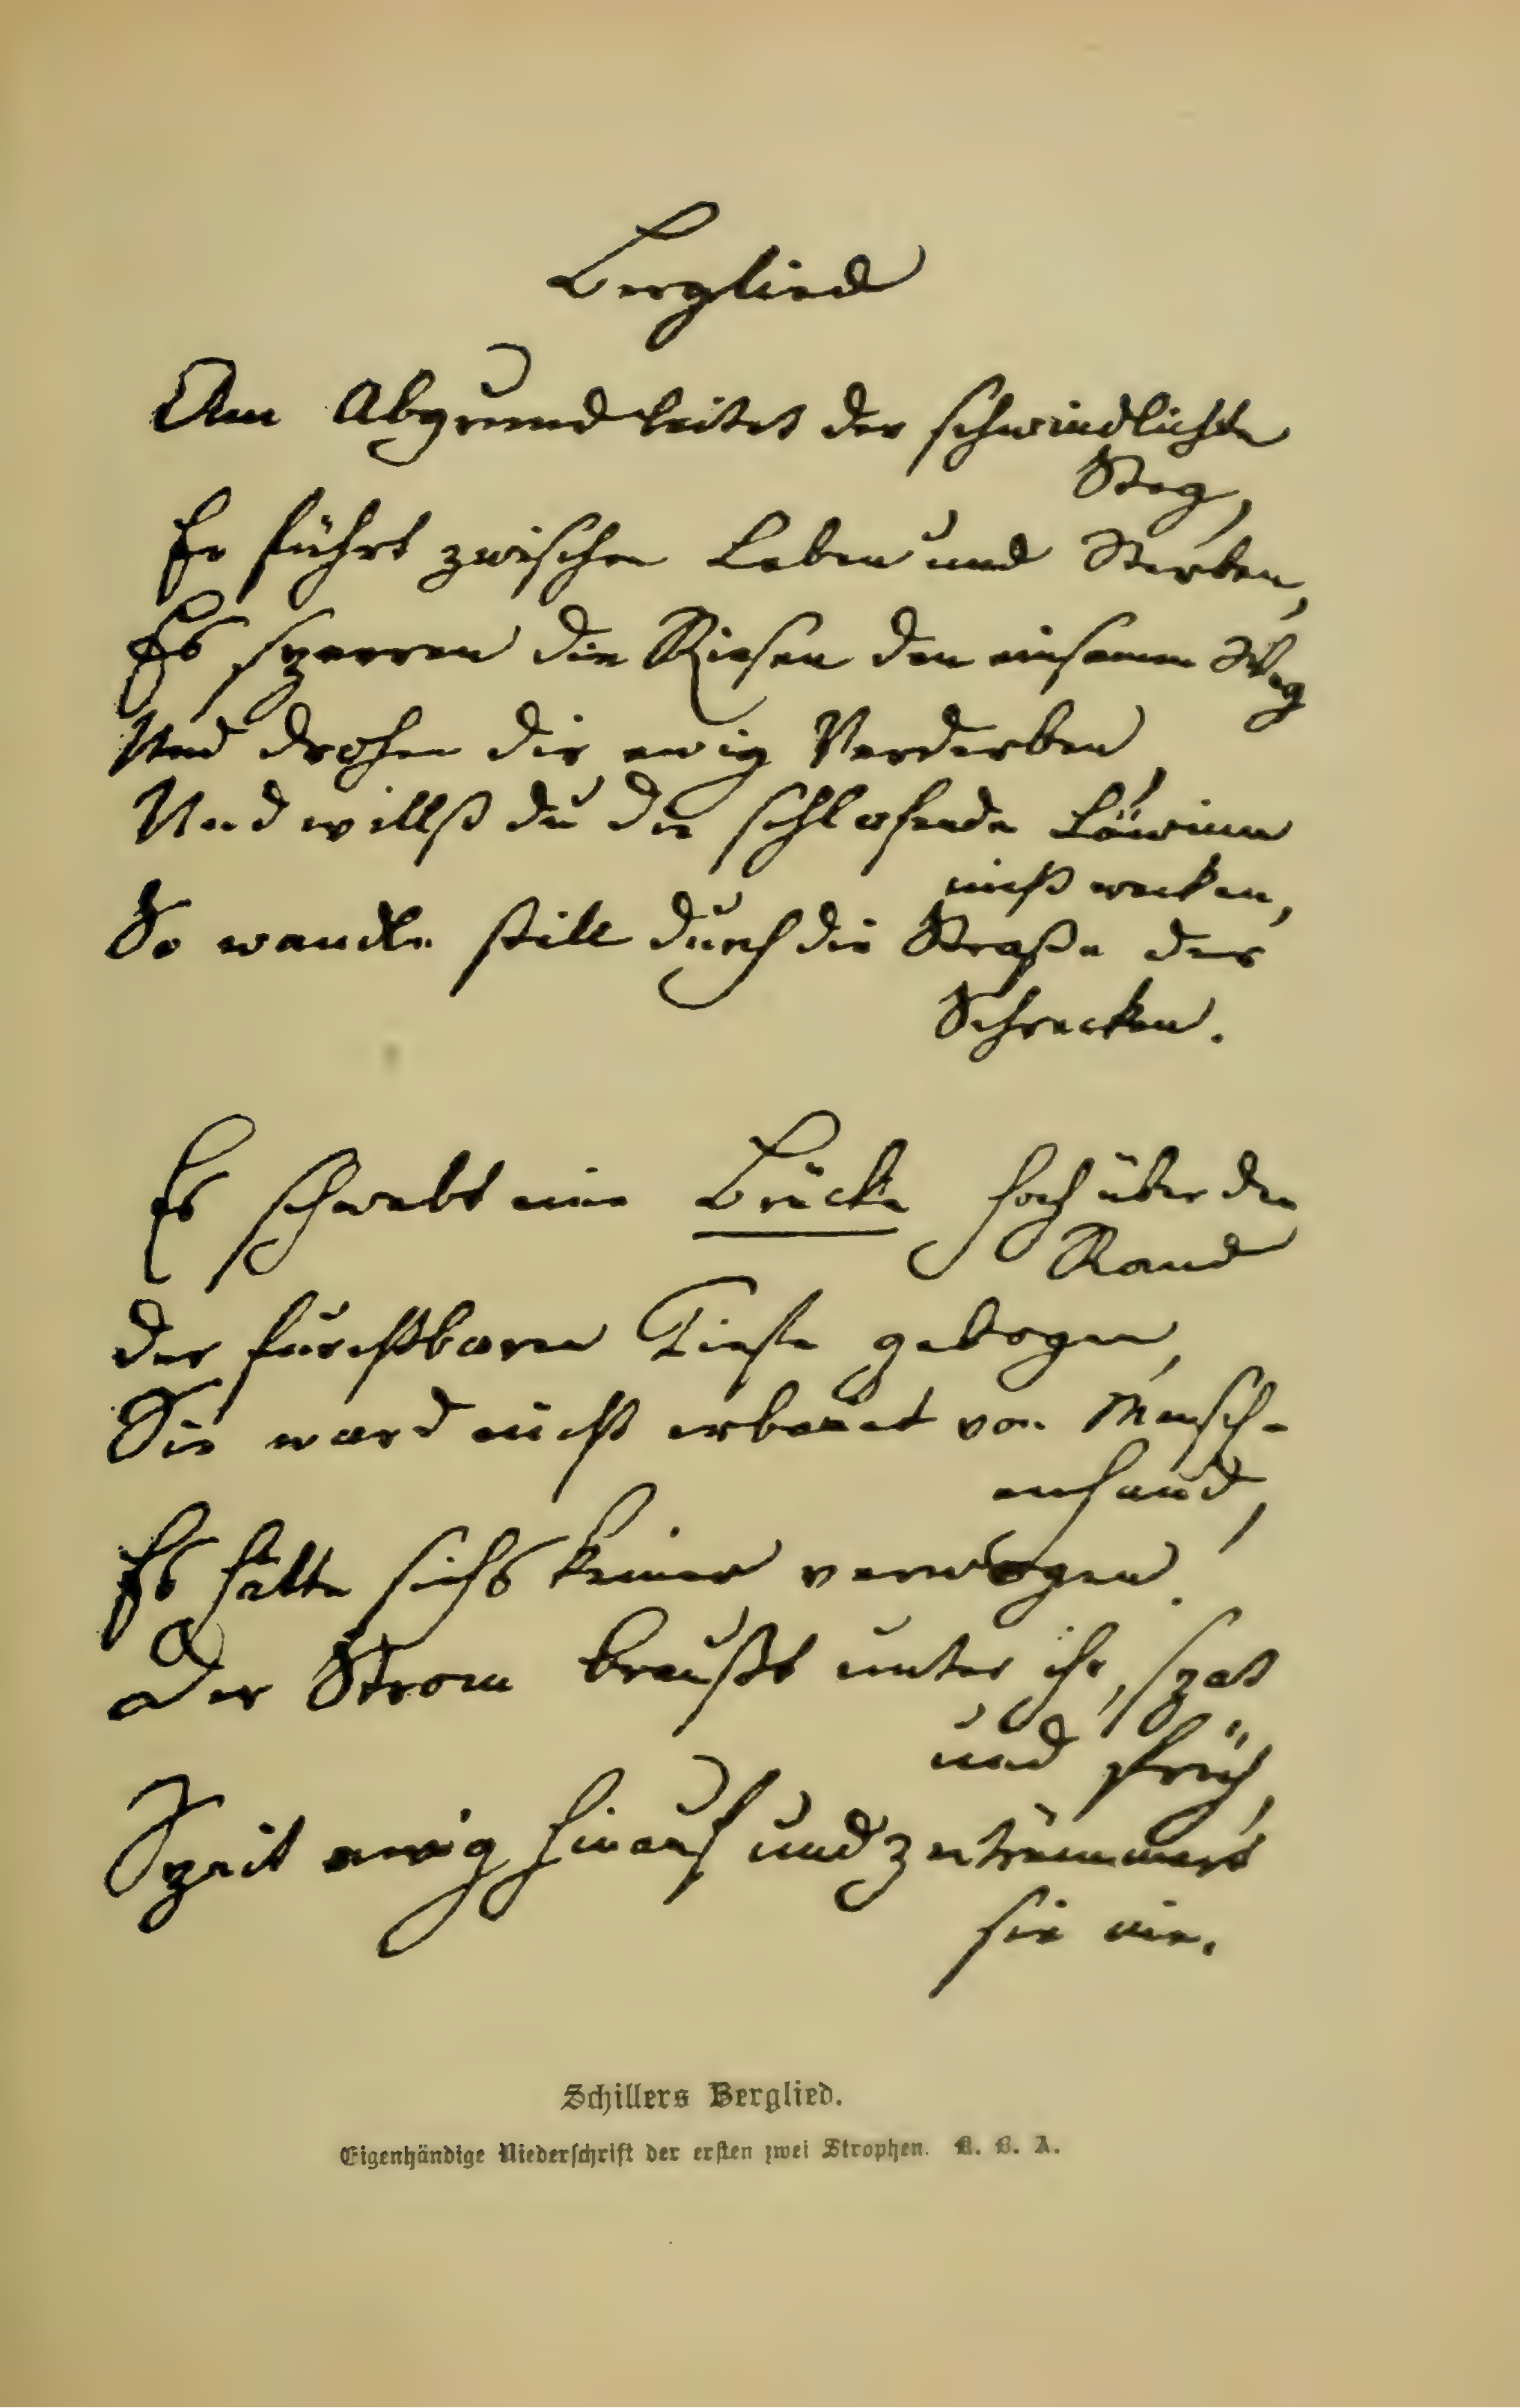 Berglied
Am Abgrund leitet der schwindlichte
Steg,
Er führt zwischen Leben und Sterben,
Es sperren die Riesen den einsamen Weg
Und drohen dir ewig Verderben,
Und willst du die schlafende Löwinn
nicht wecken,
So wandle still durch die Straße der
Schrecken.
Es schwebt eine Brücke hoch über den
Rand
Der furchtbaren Tiefe gebogen,
Sie ward nicht erbauet von Mensch-
enhand,
Es hätte sichs keiner verwogen.
Der Strom braußt unter ihr, spat
und früh,
Speit ewig hinauf und zertrümmert
sie nie.
Schillers Berglied.
Eigenhändige Niederschrift der ersten zwei Strophen. K. B. A.